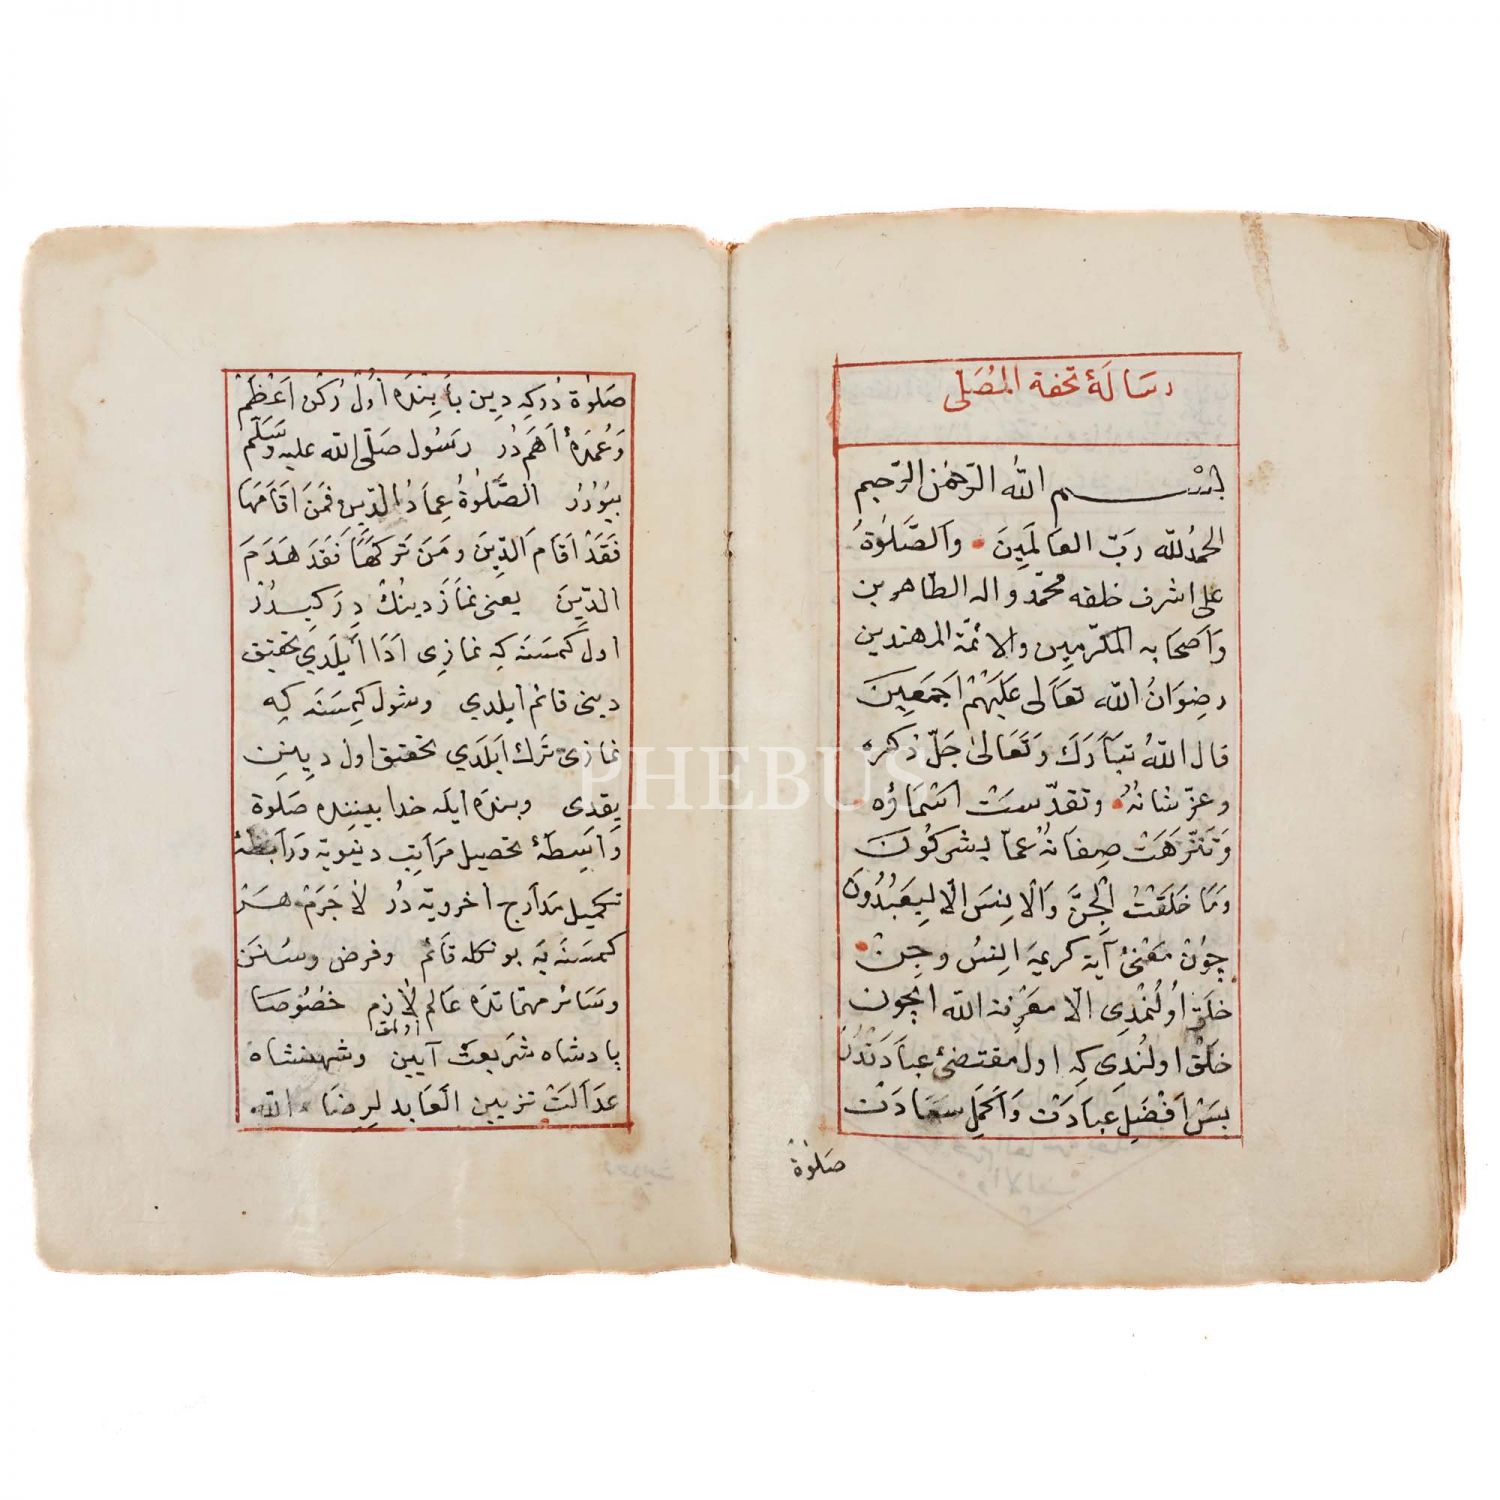 رسالۀ تحفة المصلى
بسم الله الرّحمٰن الرّحيم
الحمدُ لله ربّ العَالَمِينَ والصَّلٰوةُ
على اشرف خلقه محمّد واله الطّاهرين
وَاَصحَابه المكرّمين والائمّة المهتدين
رضِوَانُ الله تعَالى عَلَيْهِمْ اجَمَعِينَ
قال اللهُ تبَارَكَ وَتَعَالىٰ جَلّ ذكره
وعزّ شانهُ وتقدّسَتْ اسْمَاؤه
وَتَنَزّهَتْ صِفَاتهُ عمّا يشركُونَ
وَمَا خَلَقْتُ الْجِنَّ وَالْاِنسَ الّا لِيَعْبُدُونِ
چُوْن مَعْنئ آية كريمه اِنسْ وجِنْ
خلَق اوُلنُمْدِى الّا معَرِفة الله ايچون
خلَقْ اولنُدِى كه اول مقتضئ عبَادَتْدُر
بسْ اَفْضَلِ عبَادَتْ وَاَكْمَلِ سعَادَتْ
صَلٰوة
صَلٰوة دُركِه دِين بابِنْدَه اوُلْ رُكْن اَعْظَمْ
وَعُمْدَهٔ اَهَمْ دُر رسَوُل صَلّى الله عليه وَسَلّم
بيُوُرُر الصَّلٰوةُ عِمَادُ الدّين فمَنْ اَقَامَهَا
فقَدْ اَقَامَ الدّينَ ومَنَ تَركهَا فَقَدْ هَدَمَ
الدّينَ يعنى نمَازْ دينُكْ دِركيدُرْ
اول كمسَنَه كِه نمازِى اَدَا اَيلَدِي تحقيق
دينى قائم ايلدي وشول كِمسَنَه كِه
نمازى تَرك اَيلَدي تحقيق اول دينين
يقدى وبندَه ايلَه خدا بينِنده صَلٰوة
وَاسِطَهٔ تحصيل مرَاتِب دنيويّه ورَابطَهٔ
تكميل مَدَارج اخرويّه دُر لَا جَرَمْ هَرْ
كمسَنَه يَه بو نكله قَائم وفرض وسُنَن
وسَائر مهمّاتده عَالم اولمق لَازم خصُوصَا
پادشاه شرَيعتْ آيين وشهنشاه
عدَالتْ تزيين العَابد لِرضَاء الله
PHEBUS